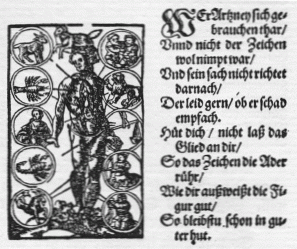 WEr Artzney sich ge-
brauchen thar/
Vnnd nicht der Zeichen
wol nimpt war/
Vnd sein sach nicht richtet
darnach/
Der leid gern/ ob er schad
empfach.
Hüt dich/ nicht laß das
Glied an dir/
So das Zeichen die Ader
rühr/
Wie dir außweißt die Fi-
gur gut/
So bleibstu schon in gu-
ter hut.